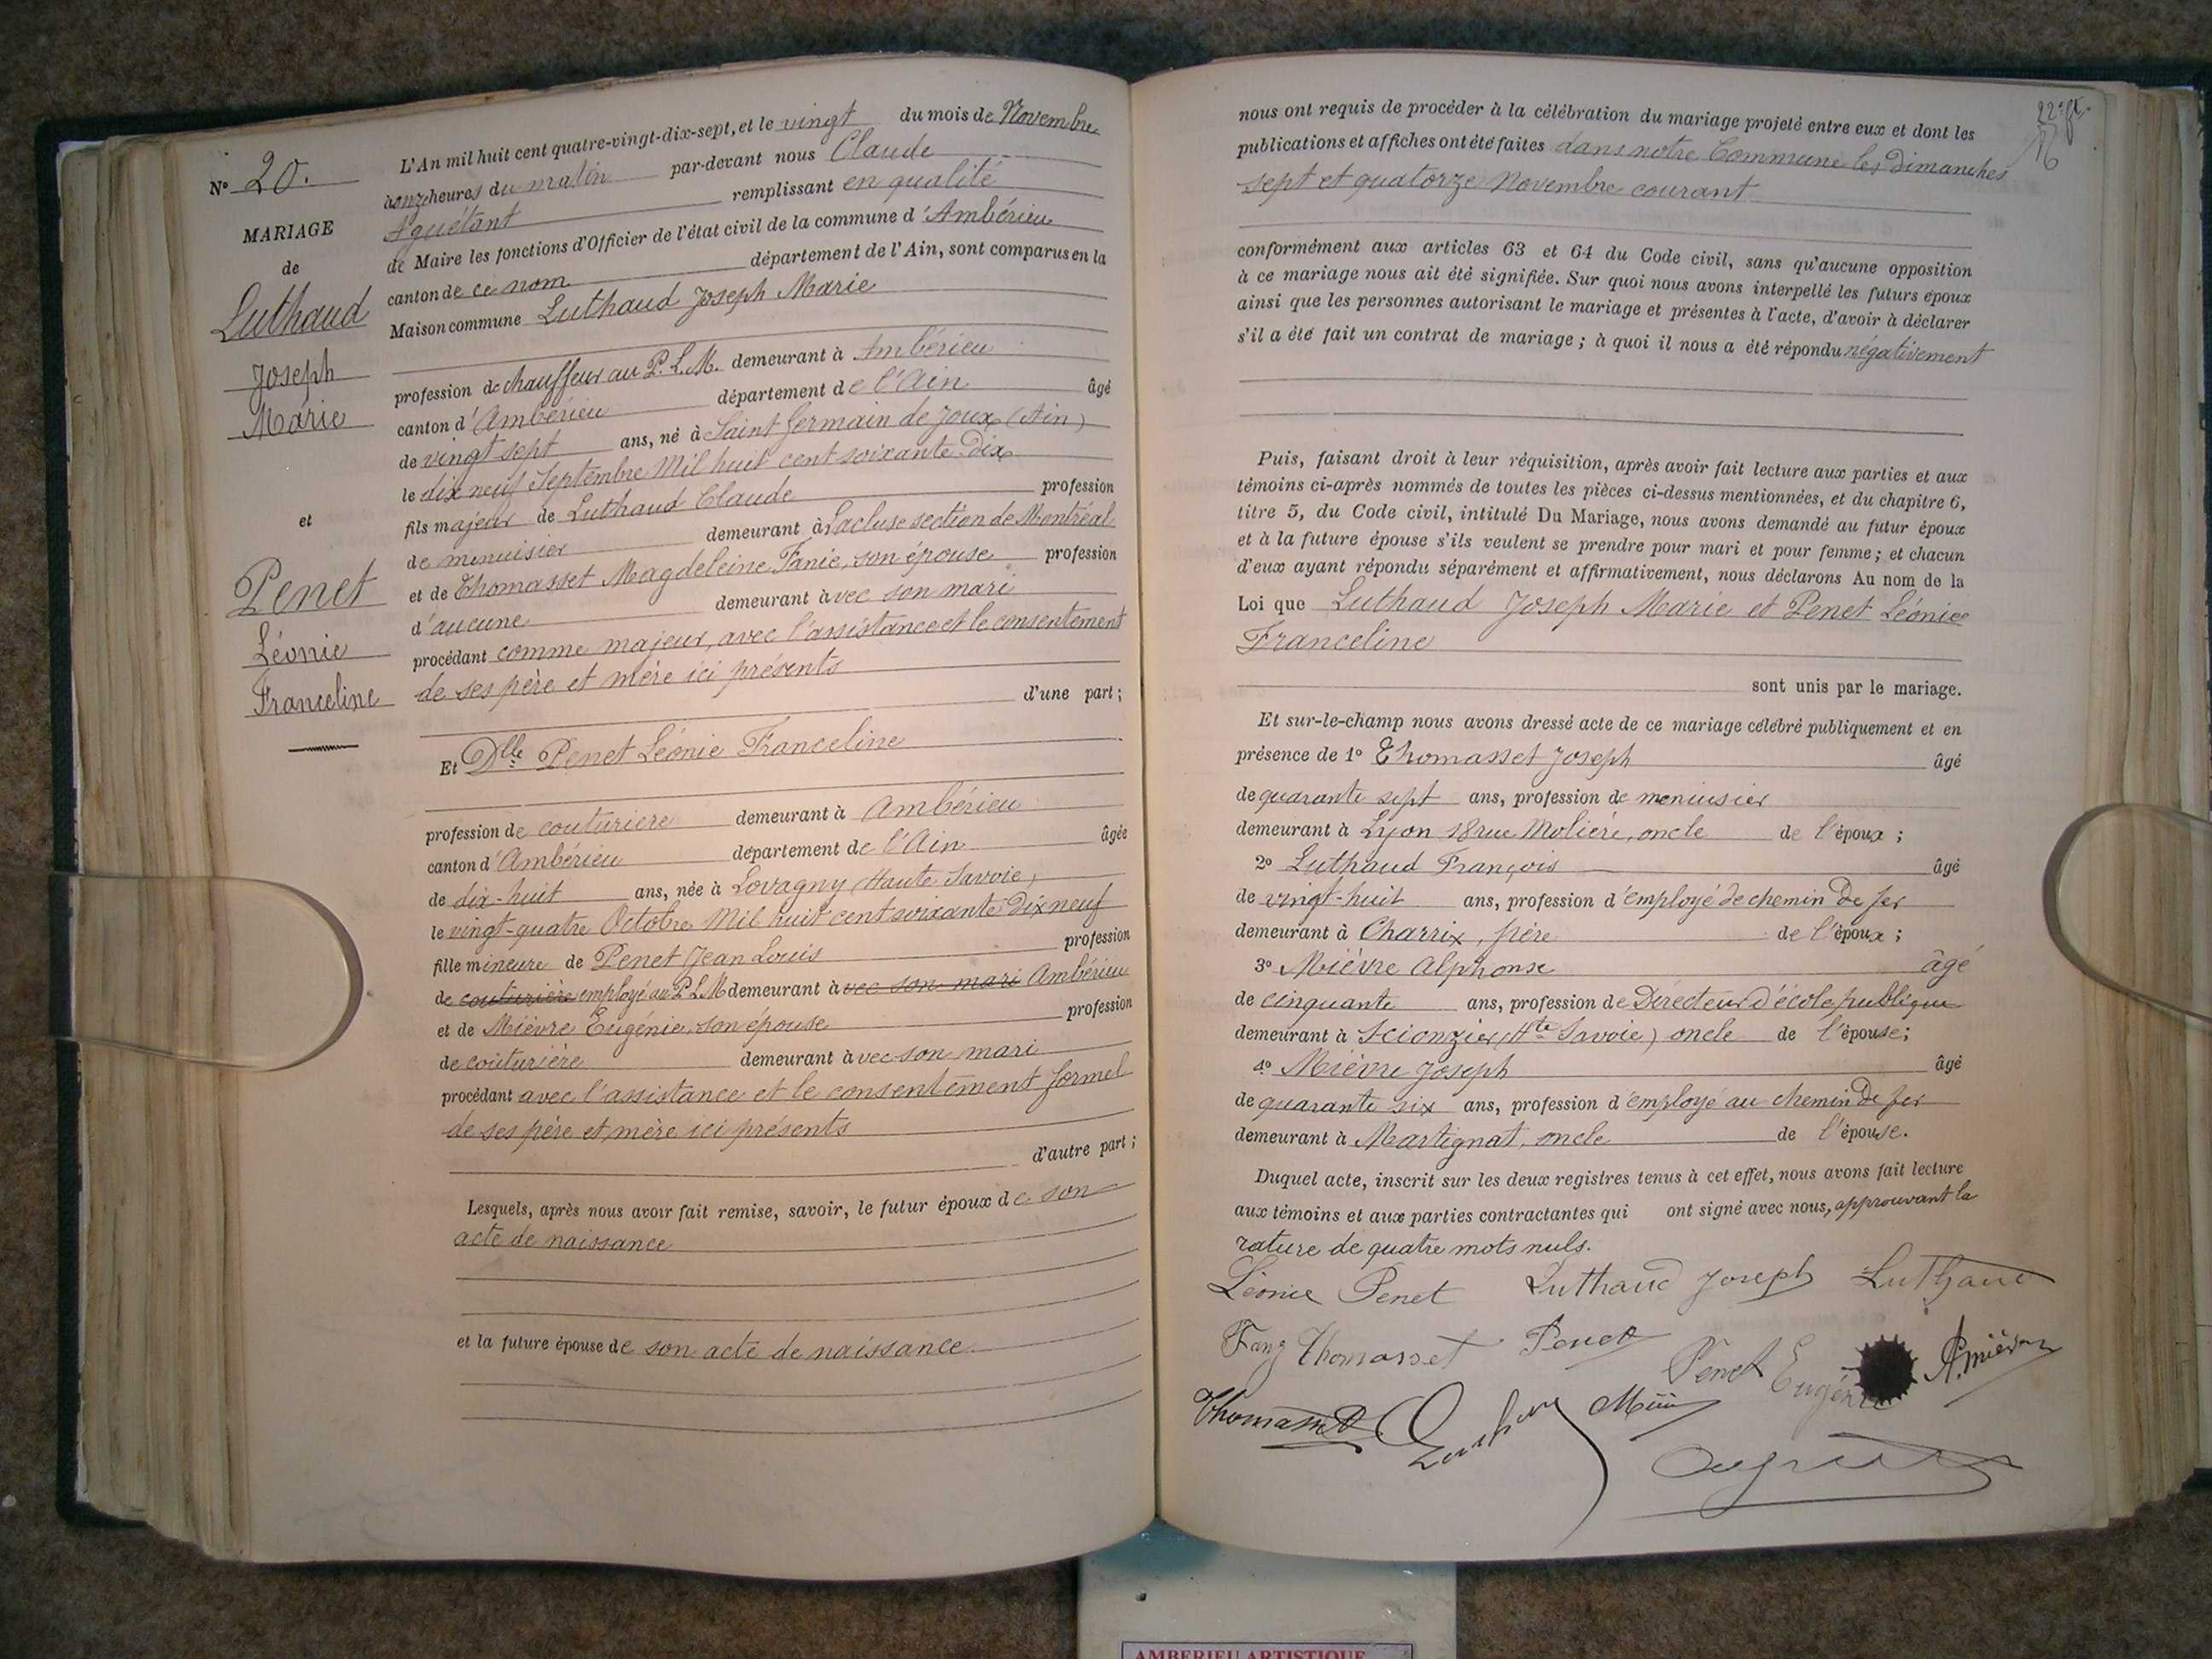 N° 20.
MARIAGE
de
Luthaud
Joseph
Marie
et
Penet
Léonie
Franceline
L'An mil huit cent quatre-vingt-dix-sept, et le vingt du mois de Novembre
à onze heures du matin par-devant nous Claude
Aguétant remplissant en qualité
de Maire les fonctions d'Officier de l'état civil de la commune d'Ambérieu
canton de ce nom département de l'Ain, sont comparus en la
Maison commune Luthaud Joseph Marie
profession de chauffeur au P. L. M. demeurant à Ambérieu
canton d'Ambérieu département de l'Ain âgé
de vingt sept ans, né à Saint Germain de Joux (Ain)
le dix neuf Septembre Mil huit cent soixante Dix
fils majeur de Luthaud Claude profession
de menuisier demeurant à Lacluse section de Montréal
et de Thomasset Magdeleine Fanie, son épouse profession
d'aucune demeurant avec son mari
procédant comme majeur, avec l'assistance et le consentement
de ses père et mère ici présents
d'une part;
Et Dlle Penet Léonie Franceline
profession de couturiere demeurant à Ambérieu
canton d'Ambérieu département de l'Ain âgée
de dix-huit ans, née à Lovagny (Haute Savoie)
le vingt-quatre Octobre Mil huit cent soixante Dix neuf
fille mineure de Penet Jean Louis profession
de couturière employé au P L M demeurant à vec son mari Ambérieu
et de Mièvre Eugénie, son épouse profession
de couturière demeurant avec son mari
procédant avec l'assistance et le consentement formel
de ses père et mère ici présents
d'autre part;
Lesquels, après nous avoir fait remise, savoir, le futur époux de son
acte de naissance
et la future épouse de son acte de naissance
nous ont requis de procéder à la célébration du mariage projeté entre eux et dont les
publications et affiches ont été faites dans notre Commune les Dimanches
sept et quatorze Novembre courant
conformément aux articles 63 et 64 du Code civil, sans qu'aucune opposition
à ce mariage nous ait été signifiée. Sur quoi nous avons interpellé les futurs époux
ainsi que les personnes autorisant le mariage et présentes à l'acte, d'avoir à déclarer
s'il a été fait un contrat de mariage; à quoi il nous a été répondu négativement
Puis, faisant droit à leur réquisition, après avoir fait lecture aux parties et aux
témoins ci-après nommés de toutes les pièces ci-dessus mentionnées, et du chapitre 6,
titre 5, du Code civil, intitulé Du Mariage, nous avons demandé au futur époux
et à la future épouse s'ils veulent se prendre pour mari et pour femme; et chacun
d'eux ayant répondu séparément et affirmativement, nous déclarons Au nom de la
Loi que Luthaud Joseph Marie et Penet Léonie
Franceline
sont unis par le mariage.
Et sur-le-champ nous avons dressé acte de ce mariage célébré publiquement et en
présence de 1° Thomasset Joseph âgé
de quarante sept ans, profession de menuisier
demeurant à Lyon 18 rue Molière, oncle de l'époux;
2° Luthaud François âgé
de vingt-huit ans, profession d'employé de chemin De fer
demeurant à Charrix, frére de l'époux;
3° Mièvre Alphonse âgé
de cinquante ans, profession de Directeur d'école publique
demeurant à Scionzier (Hte Savoie) oncle de l'épouse;
4° Mièvre Joseph âgé
de quarante six ans, profession d'employé au chemin De fer
demeurant à Martignat, oncle de l'épouse.
Duquel acte, inscrit sur les deux registres tenus à cet effet, nous avons fait lecture
aux témoins et aux parties contractantes qui ont signé avec nous, approuvant la
rature de quatre mots nuls.
Léonie Penet Luthaud Joseph Luthaud
Fany Thomasset Penet Penet Eugénie A. Mièvre
Thomasset
AMBERIEU ARTISTIQUE